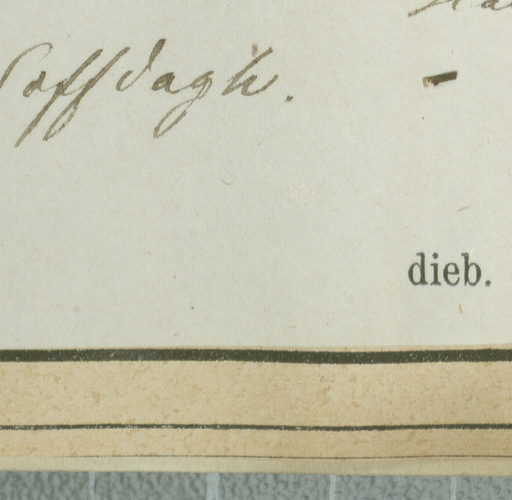 Soffdagh.
-
dieb.